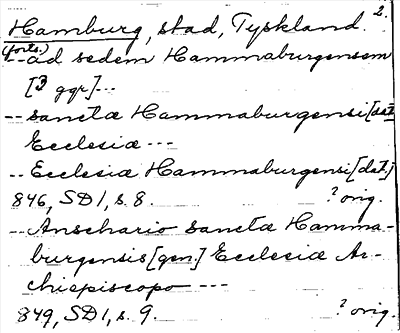 2.
Hamburg, stad, Tyskland.
(forts.)
--ad sedem Hammaburgensem
[3 ggr]---
--sanctæ Hammaburgensi[dat.]
Ecclesiæ ---
--Ecclesiæ Hammaburgensi[dat.]
846, SD1, s. 8. ? orig.
--Anschario sanctæ Hamma-
burgensis[gen.] Ecclesiæ Ar-
chiepiscopo ---
849, SD1, s. 9. ? orig.